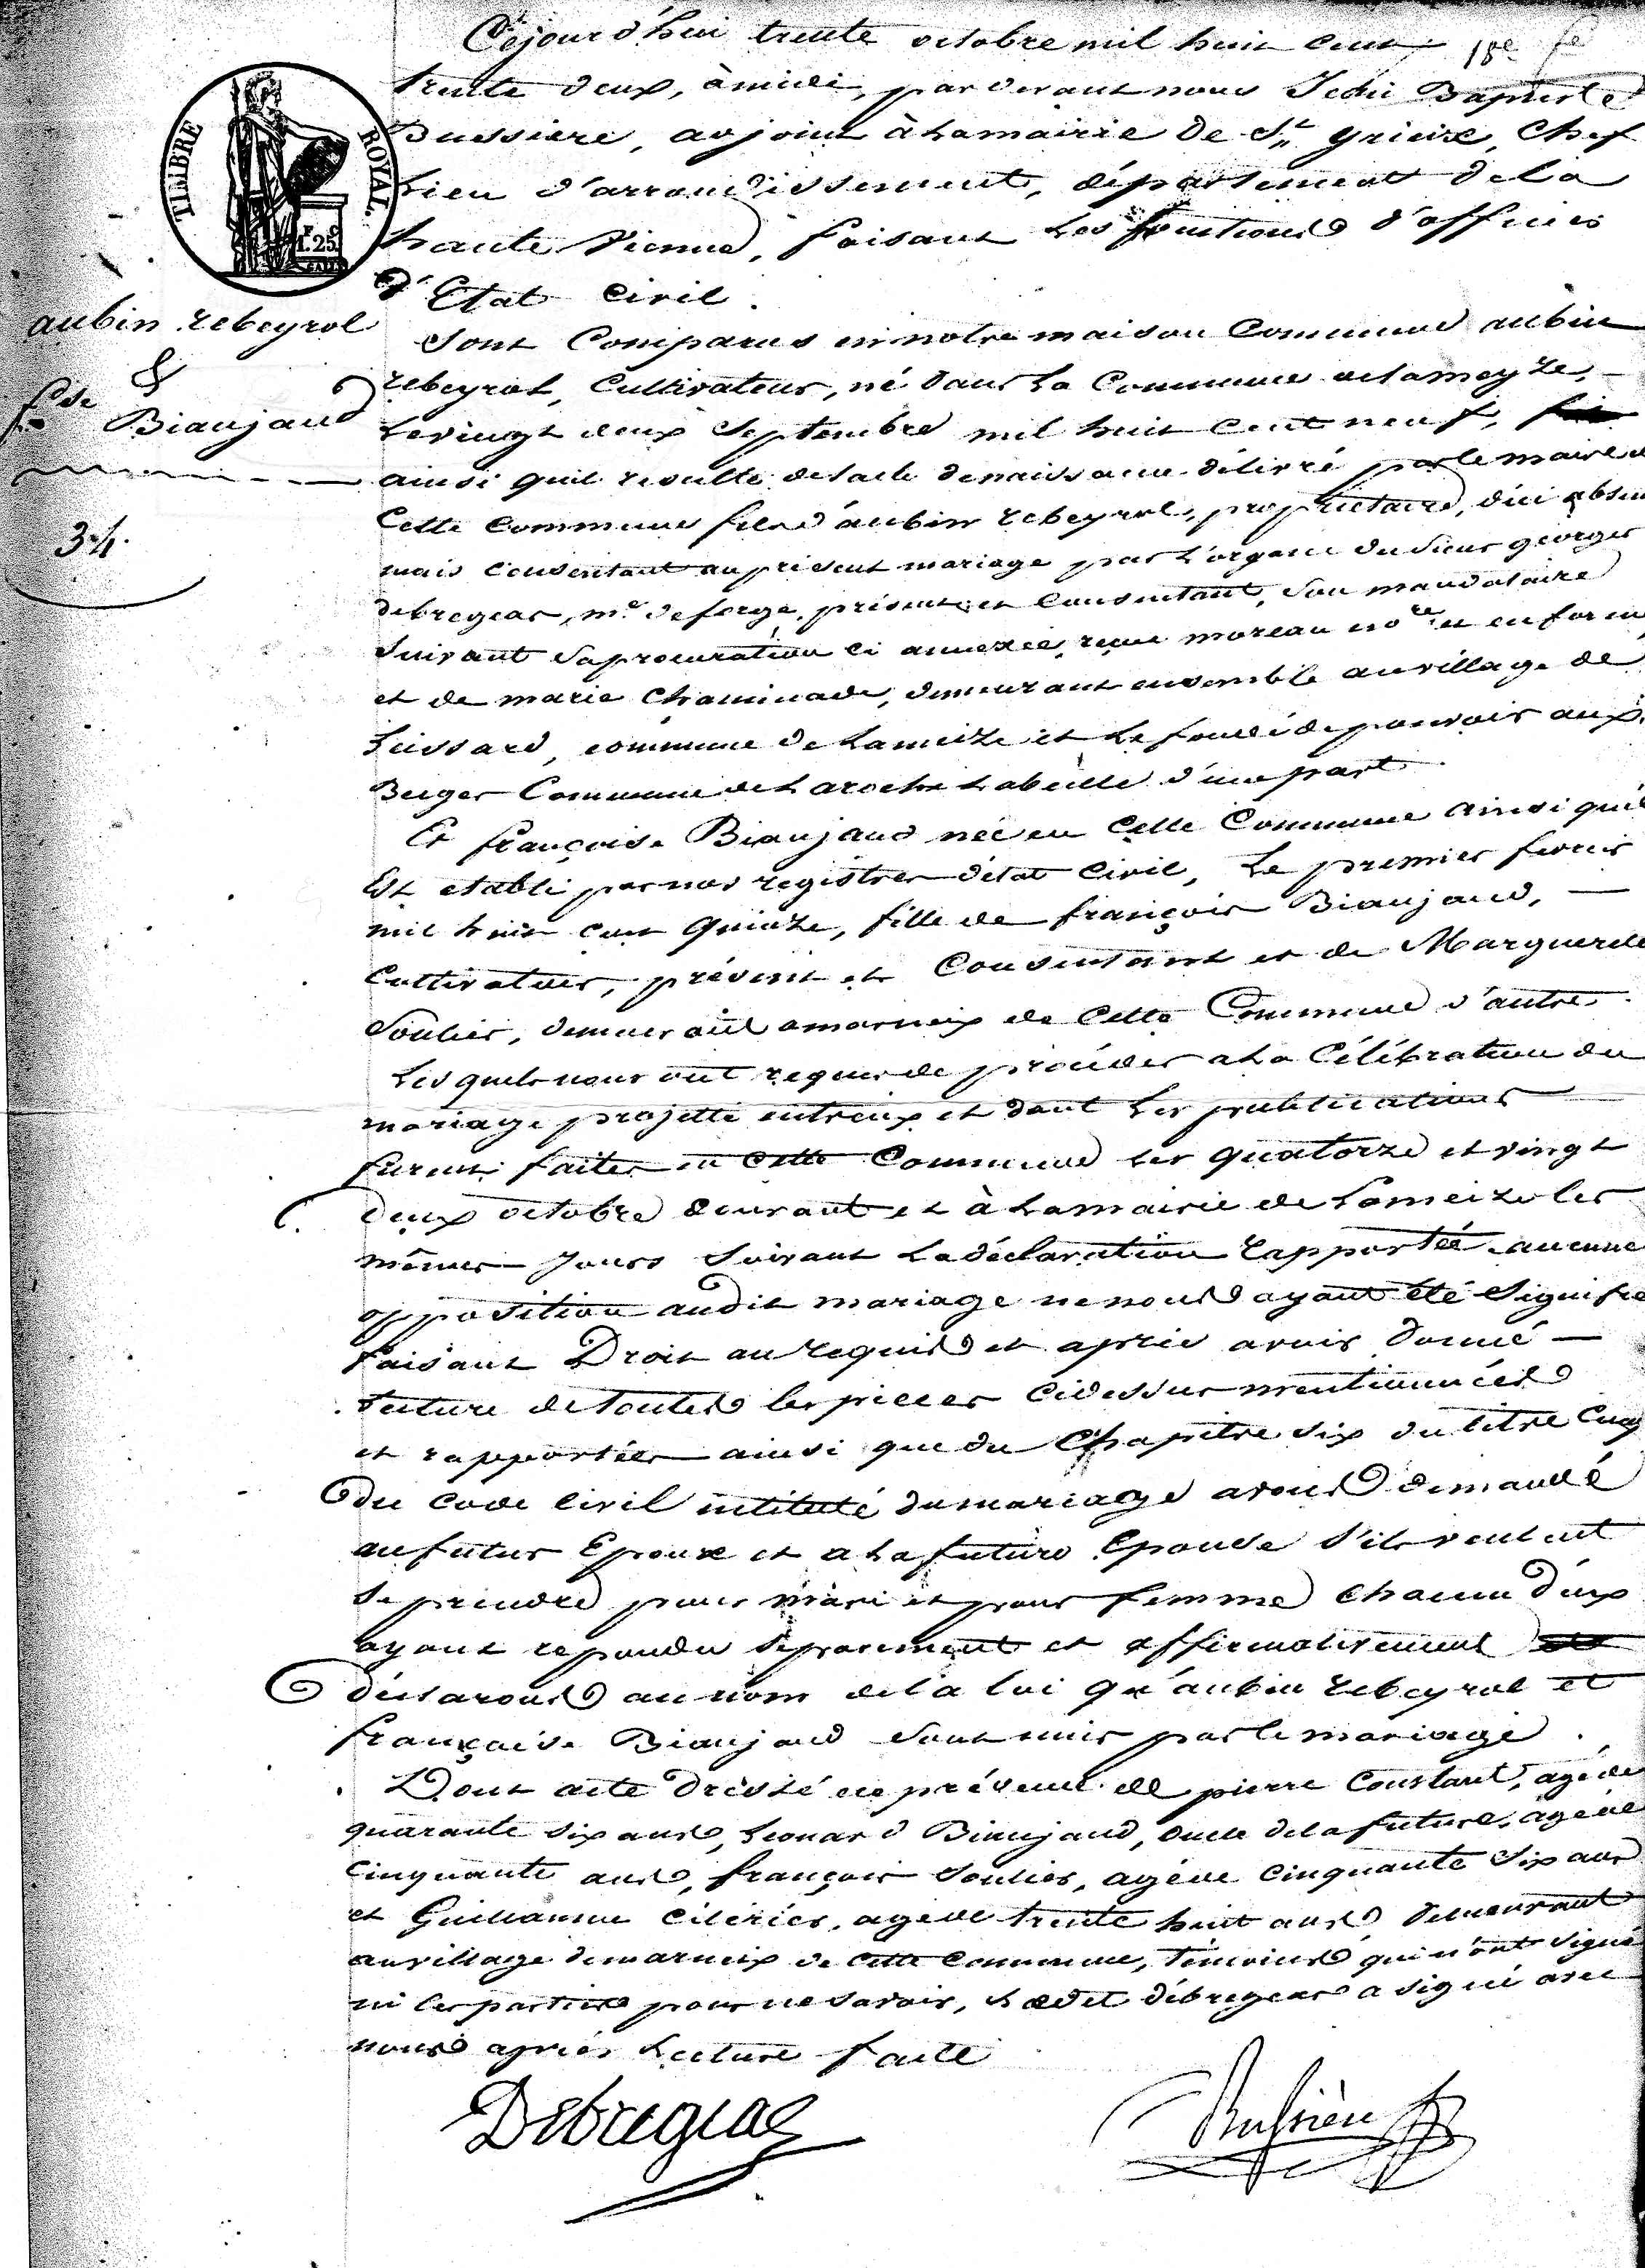 Cejourd'hui trente octobre mil huit cent 18e fe
trente deux, à midi, par devant nous Jean Baptiste
Bussiere, adjoint à la mairie de St yrieix, Chef
Lieu d'arrondissement, département de la
haute Vienne, faisant Les fonctions d'officier
d'Etat Civil.
TIMBRE ROYAL.
25
aubin rebeyrol
&
fse Biaujaud
34.
Sont Comparus en notre maison Commune aubin
rebeyrol, Cultivateur, né dans La Commune de lameyze,
Le vingt deux Septembre mil huit cent neuf,
ainsi quil resulte de l'acte de naissance délivré par le maire de
Cette Commune fils d'aubin rebeyrol, propriétaire, d'ici absent
mais Consentant au présent mariage par L'organe du Sieur georges
debregeas, me de forge, présent et Consentant, Son mandataire
Suivant Sa procuration ci annexée, reçue moreau nore et en forme
et de marie Chaminade, demeurant ensemble au village de
Leissard, commune de Lameize et Le fondé de pouvoir aux
Beiges Commune de Laroche Labeille d'une part
Et françoise Biaujaud née en Cette Commune ainsi qu'il
Est etabli par nos registres d'état Civil, Le premier fevrier
mil huit cent Quinze, fille de françois Biaujaud,
Cultivateur, présent et Consentant et de Marguerite
Soulier, demeurant a marneix de Cette Commune d'autre.
Les quels nous ont requis de procéder a La Célébration du
mariage projetté entreux et dont Les publications
furent faites en Cette Commune Les quatorze et vingt
deux octobre Courant et à La mairie de Lameize les
mêmes Jours Suivant La déclaration rapportée aucune
opposition audit mariage ne nous ayant été Signifiée
faisant Droit au requis et après avoir donné
Lecture de toutes les pieces Cidessus mentionnées
et rapportées ainsi que du Chapitre Six du titre Cinq
du Code Civil intitulé du mariage avons demandé
au futur Epoux et a La future Epouse S'ils veulent
Se prendre pour mari et pour femme Chacun d'eux
ayant repondu Séparement et affirmativement
déclarons au nom de la loi qu'aubin rebeyrol et
françoise Biaujaud Sont unis par le mariage.
Dont acte Dréssé en présence de pierre Constant, agé de
quarante Six ans, Leonard Biaujaud, oncle de la future, agé de
Cinquante ans, françois Soulier, agé de Cinquante Six ans
et Guillaume Célérier, agé de trente huit ans demeurant
au village de marneix de Cette Commune, témoins qui n'ont Signé
ni les parties pour ne Savoir, Ledit débregeas a Signé avec
nous après Lecture faite
Debregeas Bussière